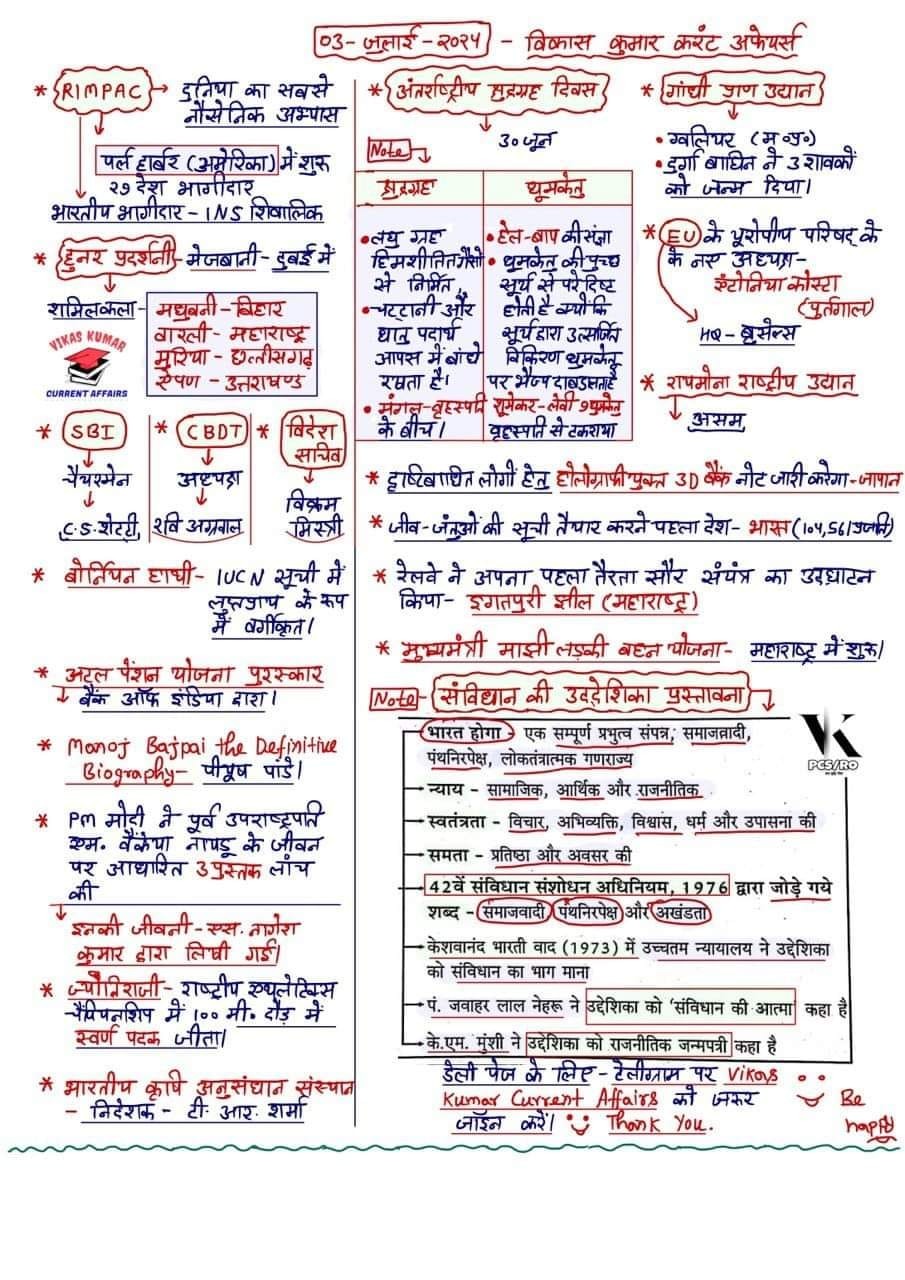 03-जुलाई-२०२५ - विकास कुमार करंट अफेयर्स
* RIMPAC → दुनिया का सबसे
नौसेनिक अभ्यास
पर्ल हार्बर (अमेरिका) में शुरू
२९ देश भागीदार
भारतीय भागीदार - INS शिवालिक
* हुनर प्रदर्शनी - मेजबानी - दुबई में
शामिल कला - मधुबनी - बिहार
वारली - महाराष्ट्र
मुरिया - छत्तीसगढ़
ऐपण - उत्तराखण्ड
VIKAS KUMAR
CURRENT AFFAIRS
* SBI
चैयरमेन
C.S. शेट्टी
* CBDT
अध्यक्ष
रवि अग्रवाल
* विदेश
सचिव
विक्रम
मिस्त्री
* बोर्नियन हाथी - IUCN सूची में
लुप्तप्राय के रूप
में वर्गीकृत।
* अटल पेंशन योजना पुरस्कार
बैंक ऑफ इंडिया द्वारा।
* Manoj Bajpai the Definitive
Biography - पीयूष पांडे।
* PM मोदी ने पूर्व उपराष्ट्रपति
एम. वैंकेया नायडू के जीवन
पर आधारित 3 पुस्तक लांच
की
इनकी जीवनी - एस. नागेश
कुमार द्वारा लिखी गई।
* ज्योतिराजी - राष्ट्रीय एथलेटिक्स
चैंपियनशिप में १०० मी. दौड़ में
स्वर्ण पदक जीता।
* भारतीय कृषि अनुसंधान संस्थान
- निदेशक - टी. आर. शर्मा
* अंतर्राष्ट्रीय क्षुद्रग्रह दिवस
3० जून
Note
क्षुद्रग्रह
• लघु ग्रह
हिमशीतित गैसों
से निर्मित,
• चट्टानी और
धातु पदार्थ
आपस में बांधे
रखता है।
• मंगल-बृहस्पति
के बीच।
धूमकेतु
• हेल-बाप की संज्ञा
• धूमकेतु की पुच्छ
सूर्य से परे दिष्ट
होती है क्योंकि
सूर्य द्वारा उत्सर्जित
विकिरण धूमकेतु
पर दाब डालता है
शुमेकर-लेवी 9 धूमकेतु
वृहस्पति से टकराया
* गांधी प्राण उद्यान
• ग्वलियर (म०प्र०)
• दुर्गा बाघिन ने 3 शावकों
को जन्म दिया।
* EU के यूरोपीय परिषद् के
के नए अध्यक्ष -
इंटोनिया कोस्टा
(पुर्तगाल)
HQ - ब्रुसेल्स
* रायमोना राष्ट्रीय उद्यान
असम
* दृष्टिबाधित लोगों हेतु होलोग्राफी युक्त 3D बैंक नोट जारी करेगा - जापान
* जीव-जंतुओं की सूची तैयार करने पहला देश - भारत (104,561 प्रजाति)
* रेलवे ने अपना पहला तैरता सौर संयंत्र का उद्घाटन
किया - इगतपुरी झील (महाराष्ट्र)
* मुख्यमंत्री माझी लड़की बहन योजना - महाराष्ट्र में शुरू।
Note - संविधान की उद्देशिका प्रस्तावना
भारत होगा - एक सम्पूर्ण प्रभुत्व संपन्न, समाजवादी,
पंथनिरपेक्ष, लोकतंत्रात्मक गणराज्य
न्याय - सामाजिक, आर्थिक और राजनीतिक
स्वतंत्रता - विचार, अभिव्यक्ति, विश्वास, धर्म और उपासना की
समता - प्रतिष्ठा और अवसर की
42वें संविधान संशोधन अधिनियम, 1976 द्वारा जोड़े गये
शब्द - समाजवादी पंथनिरपेक्ष और अखंडता
केशवानंद भारती वाद (1973) में उच्चतम न्यायालय ने उद्देशिका
को संविधान का भाग माना
पं. जवाहर लाल नेहरू ने उद्देशिका को 'संविधान की आत्मा' कहा है
के.एम. मुंशी ने उद्देशिका को राजनीतिक जन्मपत्री कहा है
VK
PCS/RO
डेली पेज के लिए - टेलीग्राम पर Vikas
Kumar Current Affairs को जरूर
जॉइन करें। Thank You.
Be
happy